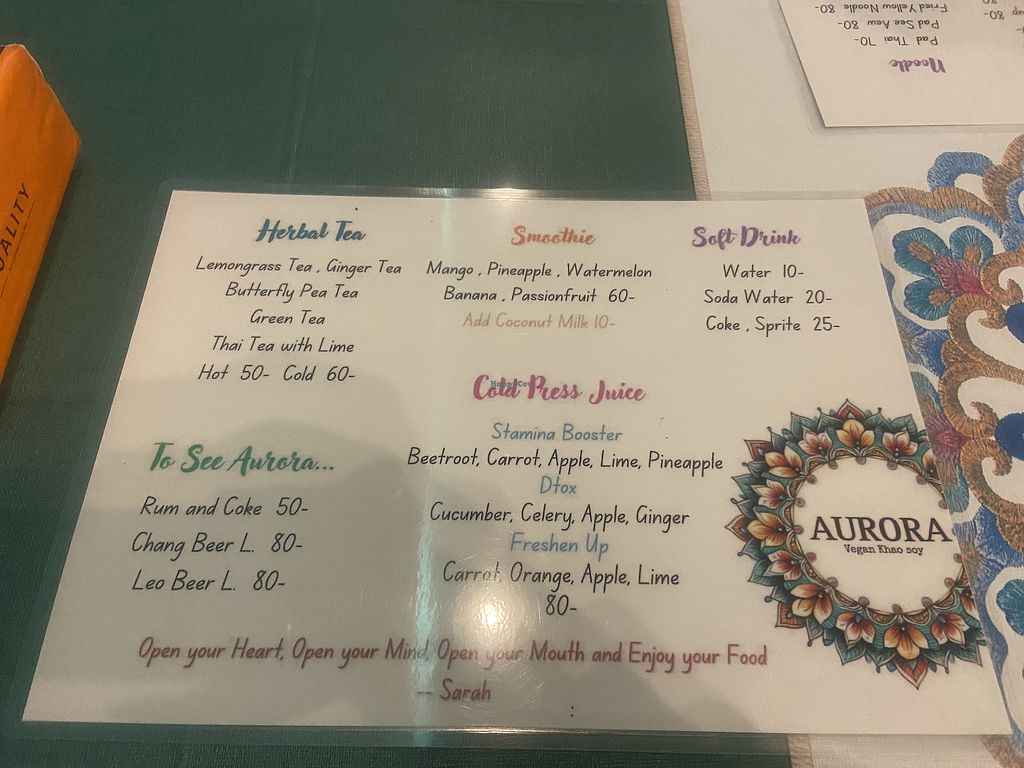 Herbal Tea
Lemongrass Tea , Ginger Tea
Butterfly Pea Tea
Green Tea
Thai Tea with Lime
Hot 50- Cold 60-
Smoothie
Mango , Pineapple , Watermelon
Banana , Passionfruit 60-
Add Coconut Milk 10-
Soft Drink
Water 10-
Soda Water 20-
Coke , Sprite 25-
Cold Press Juice
HappyCow
Stamina Booster
Beetroot, Carrot, Apple, Lime, Pineapple
Dtox
Cucumber, Celery, Apple, Ginger
Freshen Up
Carrot, Orange, Apple, Lime
80-
To See Aurora...
Rum and Coke 50-
Chang Beer L. 80-
Leo Beer L. 80-
AURORA
Vegan Khao soy
Open your Heart, Open your Mind, Open your Mouth and Enjoy your Food
-- Sarah
:
Noodle
Pad Thai 70-
Pad See Aew 80-
Fried Yellow Noodle 80-
80-